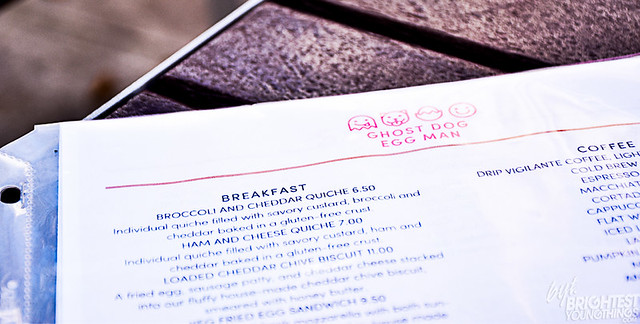 GHOST DOG
EGG MAN
BREAKFAST
BROCCOLI AND CHEDDAR QUICHE 6.50
Individual quiche filled with savory custard, broccoli and
cheddar baked in a gluten-free crust
HAM AND CHEESE QUICHE 7.00
Individual quiche filled with savory custard, ham and
cheddar baked in a gluten-free crust
LOADED CHEDDAR CHIVE BISCUIT 11.00
A fried egg, sausage patty, and cheddar cheese stacked
into our fluffy house-made cheddar chive biscuit,
smeared with honey butter
EGG FRIED EGG SANDWICH 9.50
mozzarella with
made
COFFEE
DRIP VIGILANTE COFFEE, LIGH
COLD BREW
ESPRESSO
MACCHIA
CORTAD
CAPPUCC
FLAT W
ICED L
LA
PUMPKIN
byt
BRIGHTEST
YOUNG THINGS